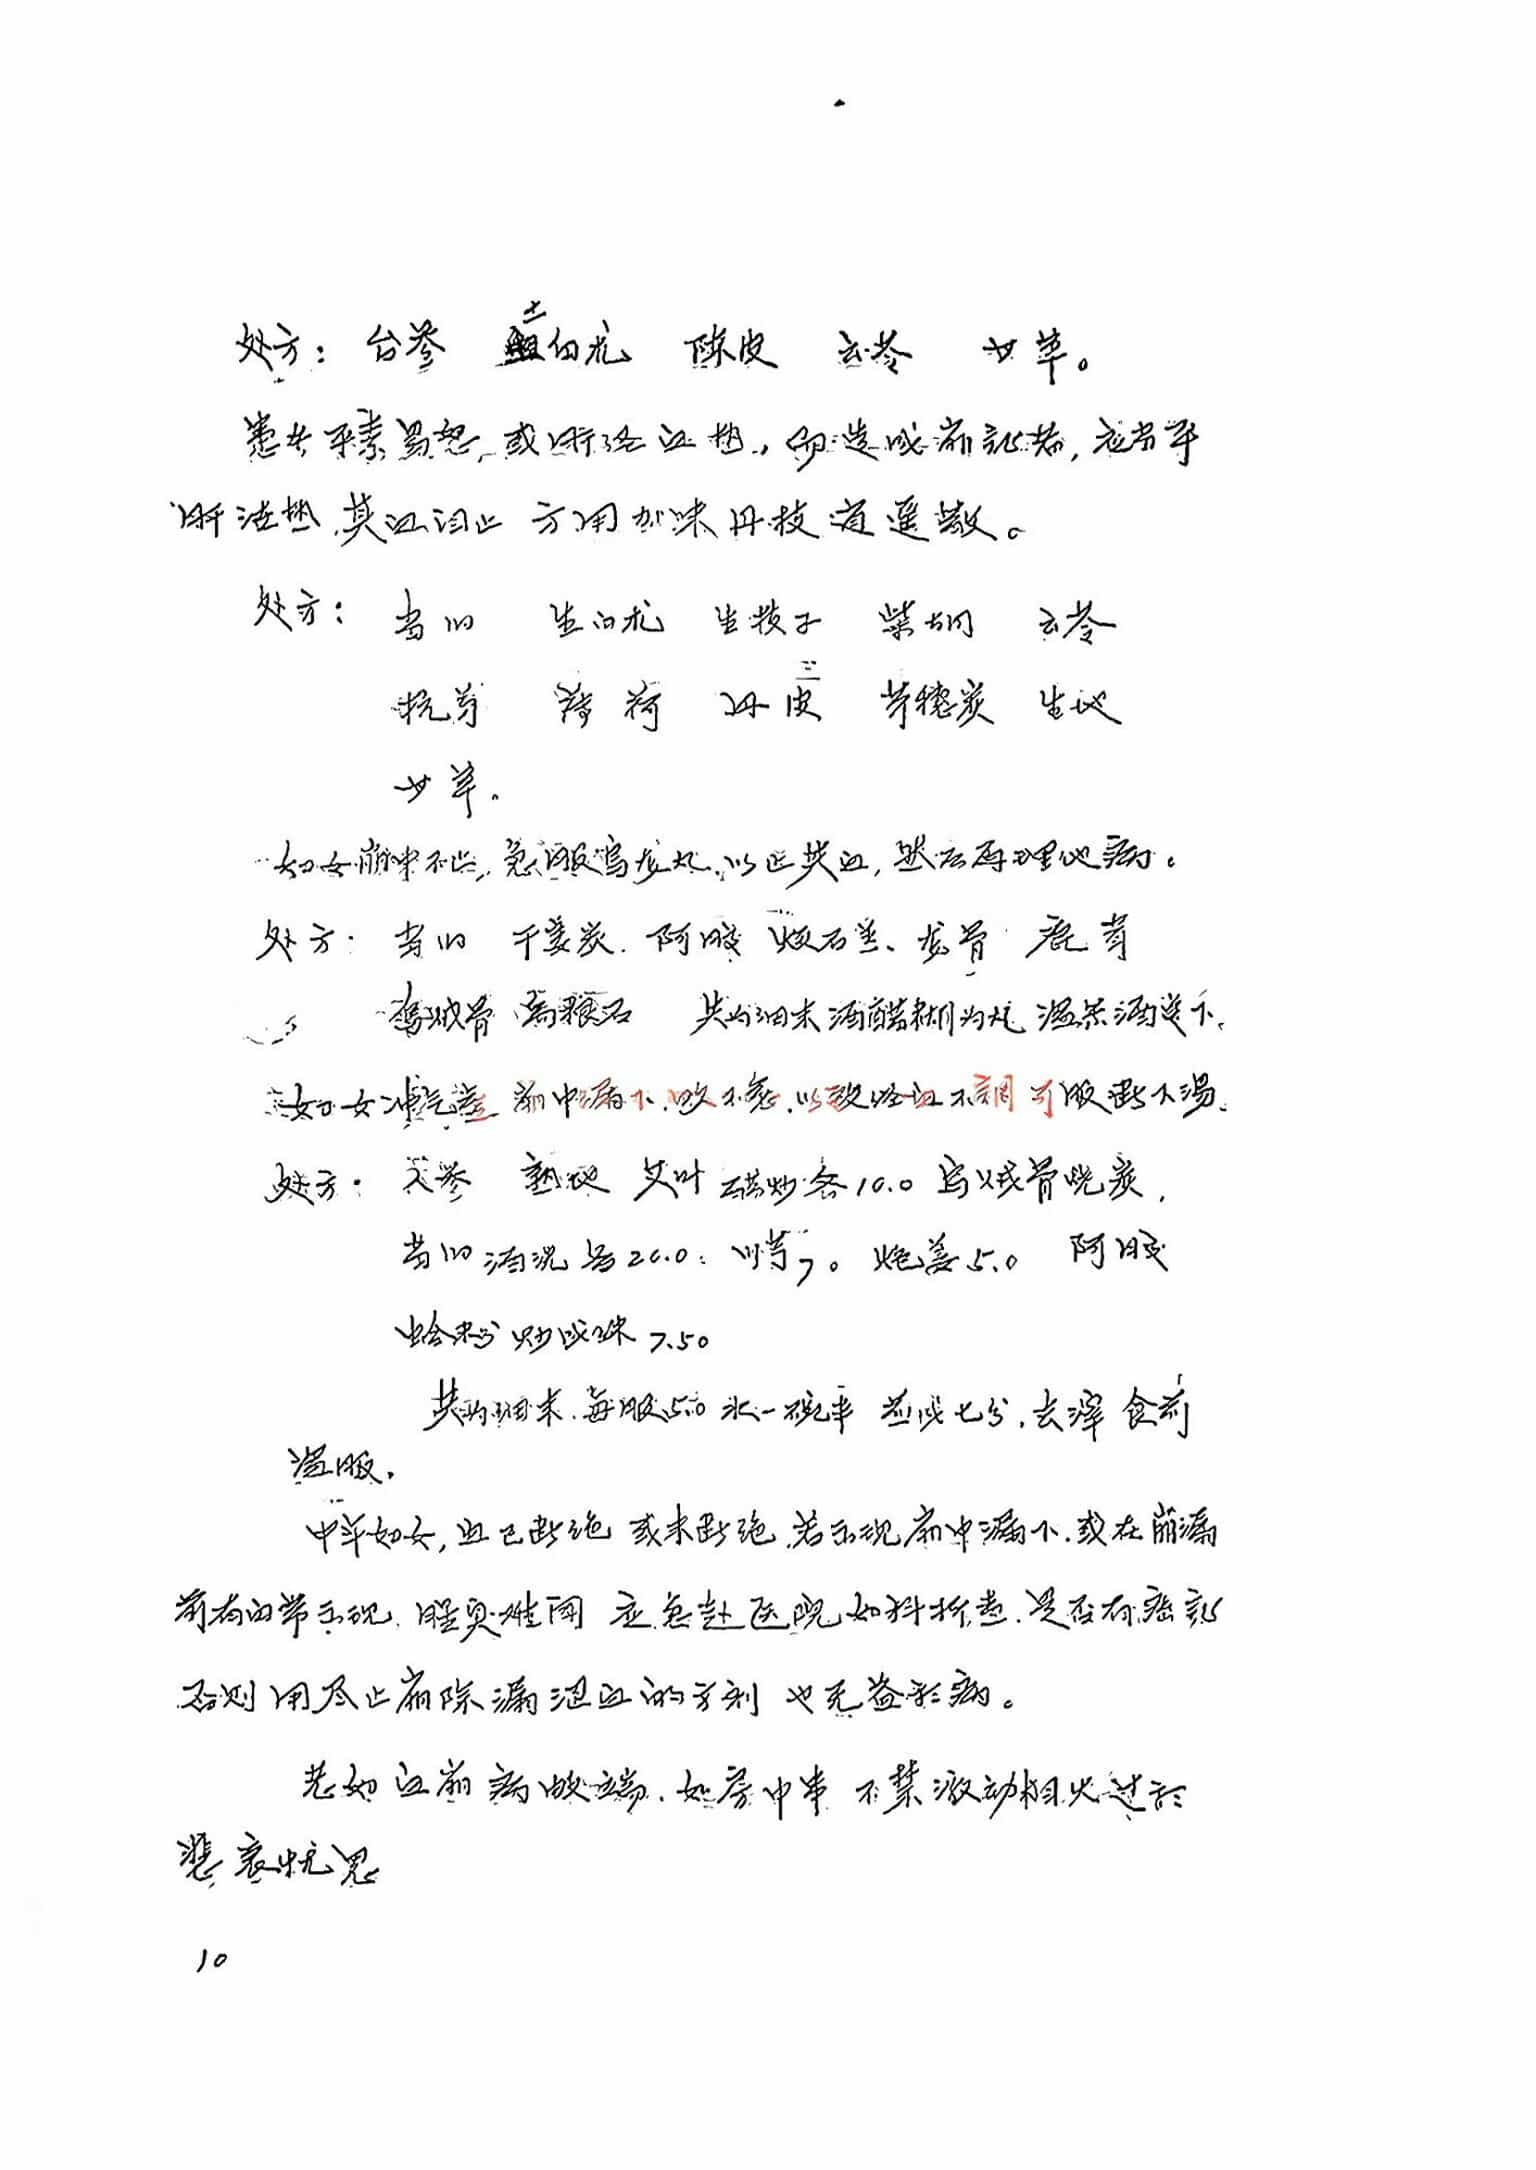 处方：台参 土白朮 陈皮 云苓 甘草。
患者平素易怒，或肝经血热，而造成崩症者，应当平
肝清热，其血自止 方用加味丹枝逍遥散。
处方：当归 生白朮 生枝子 柴胡 云苓
杭芍 薄荷 丹皮 芥穗炭 生地
甘草.
妇女崩中不止，急服乌龙丸，以止其血，然后再理他病。
处方：当归 干姜炭. 阿胶 煅石 龙骨 鹿茸
乌贼骨 禹粮石 共为细末 酒醋糊为丸 温 酒送下.
妇女冲气 崩中漏下.久不愈.以致经血不調 可服断下汤.
处方：人参 熟地 艾叶 醋炒各10.0 乌贼骨烧炭，
当归 酒洗 各20.0： 川芎7。 炮姜5.0 阿胶
蛤粉炒成珠 7.50
共为细末.每服5.0 水一碗半 煎成七分，去滓 食前
温服.
中年妇女，血已断绝 或未断绝.若出现崩中漏下.或在崩漏
前有白带出现. 腥臭难闻 应急赴医院妇科检查.是否有癌症
否则用尽止崩除漏 血的方剂 也无益於病。
老妇血崩病 端.如房中事 不禁激动相火过於
悲哀忧思
10